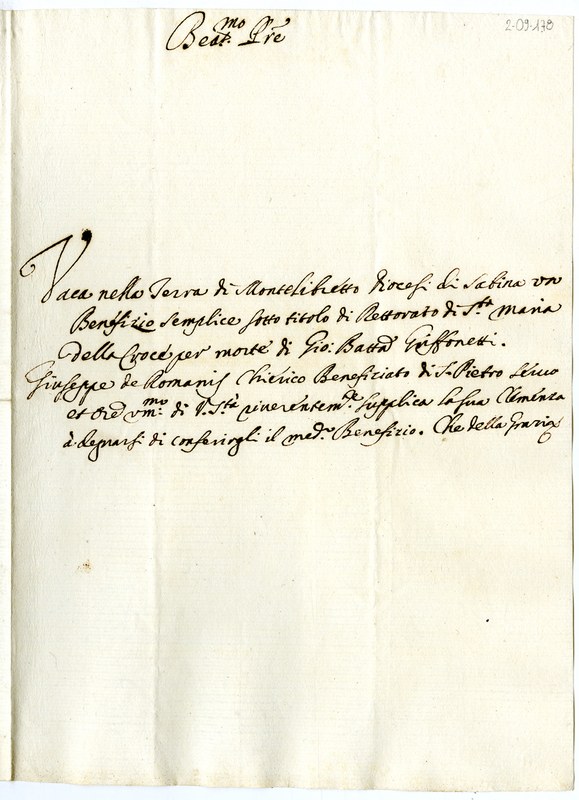 2-09-178
Beat.mo Pre
Vaca nella Terra di Montelibretto diocesi di Sabina un
Benefizio semplice sotto titolo di Rettorato di S.ta Maria
della Croce per morte di Gio: Batta Griffonetti.
Giuseppe de Romanis Chierico Beneficiato di S. Pietro servo
et Ore vmo: di V. Stà riverentem.te supplica la sua Clemenza
à degnarsi di conferirgli il med.o Benefizio. Che della Grazia